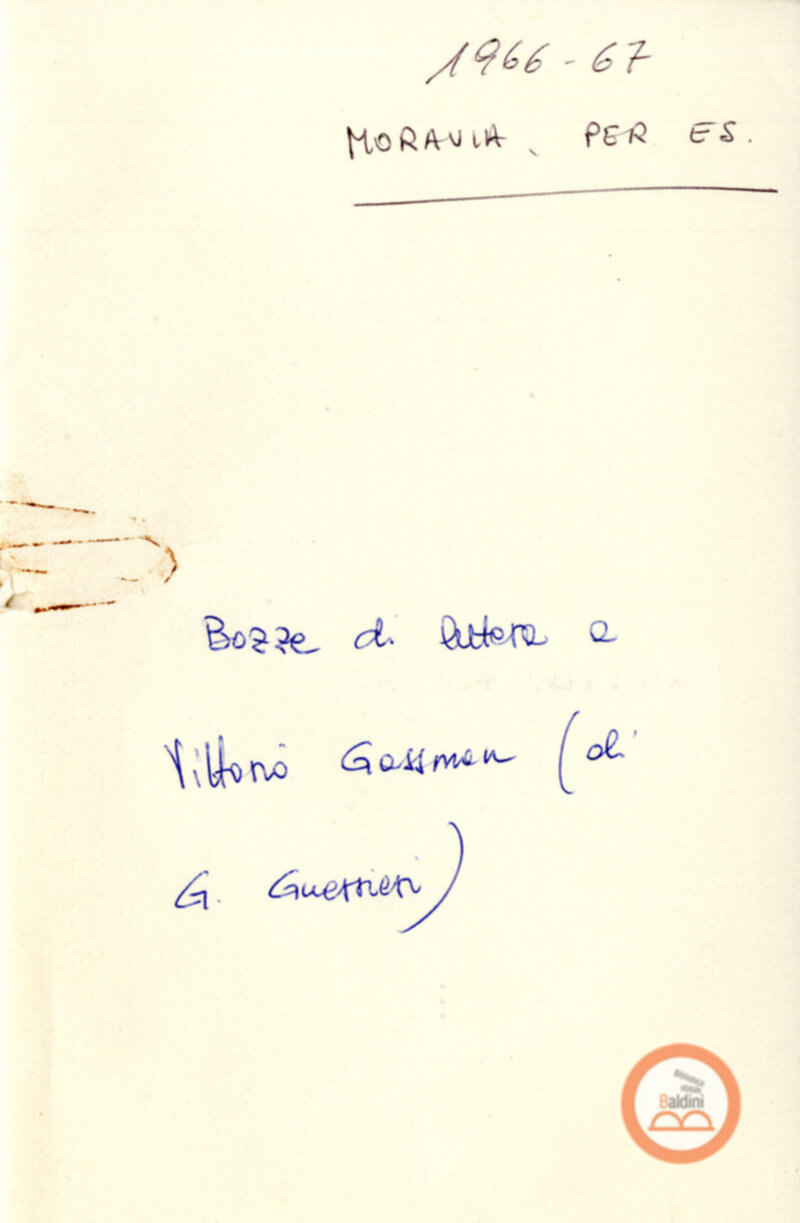 1966-67
MORAVIA, PER ES.
Bozze di lettera a
Vittorio Gassman (di
G. Guerrieri)
Biblioteca
statale
Baldini